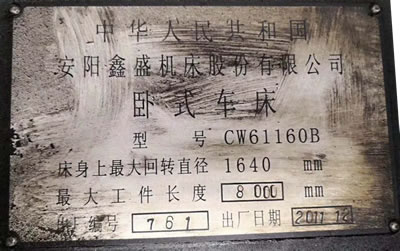 中华人民共和国
安阳鑫盛机床股份有限公司
卧式车床
型号 CW61160B
床身上最大回转直径 1640 mm
最大工件长度 8000 mm
出厂编号 761 出厂日期 2011 12